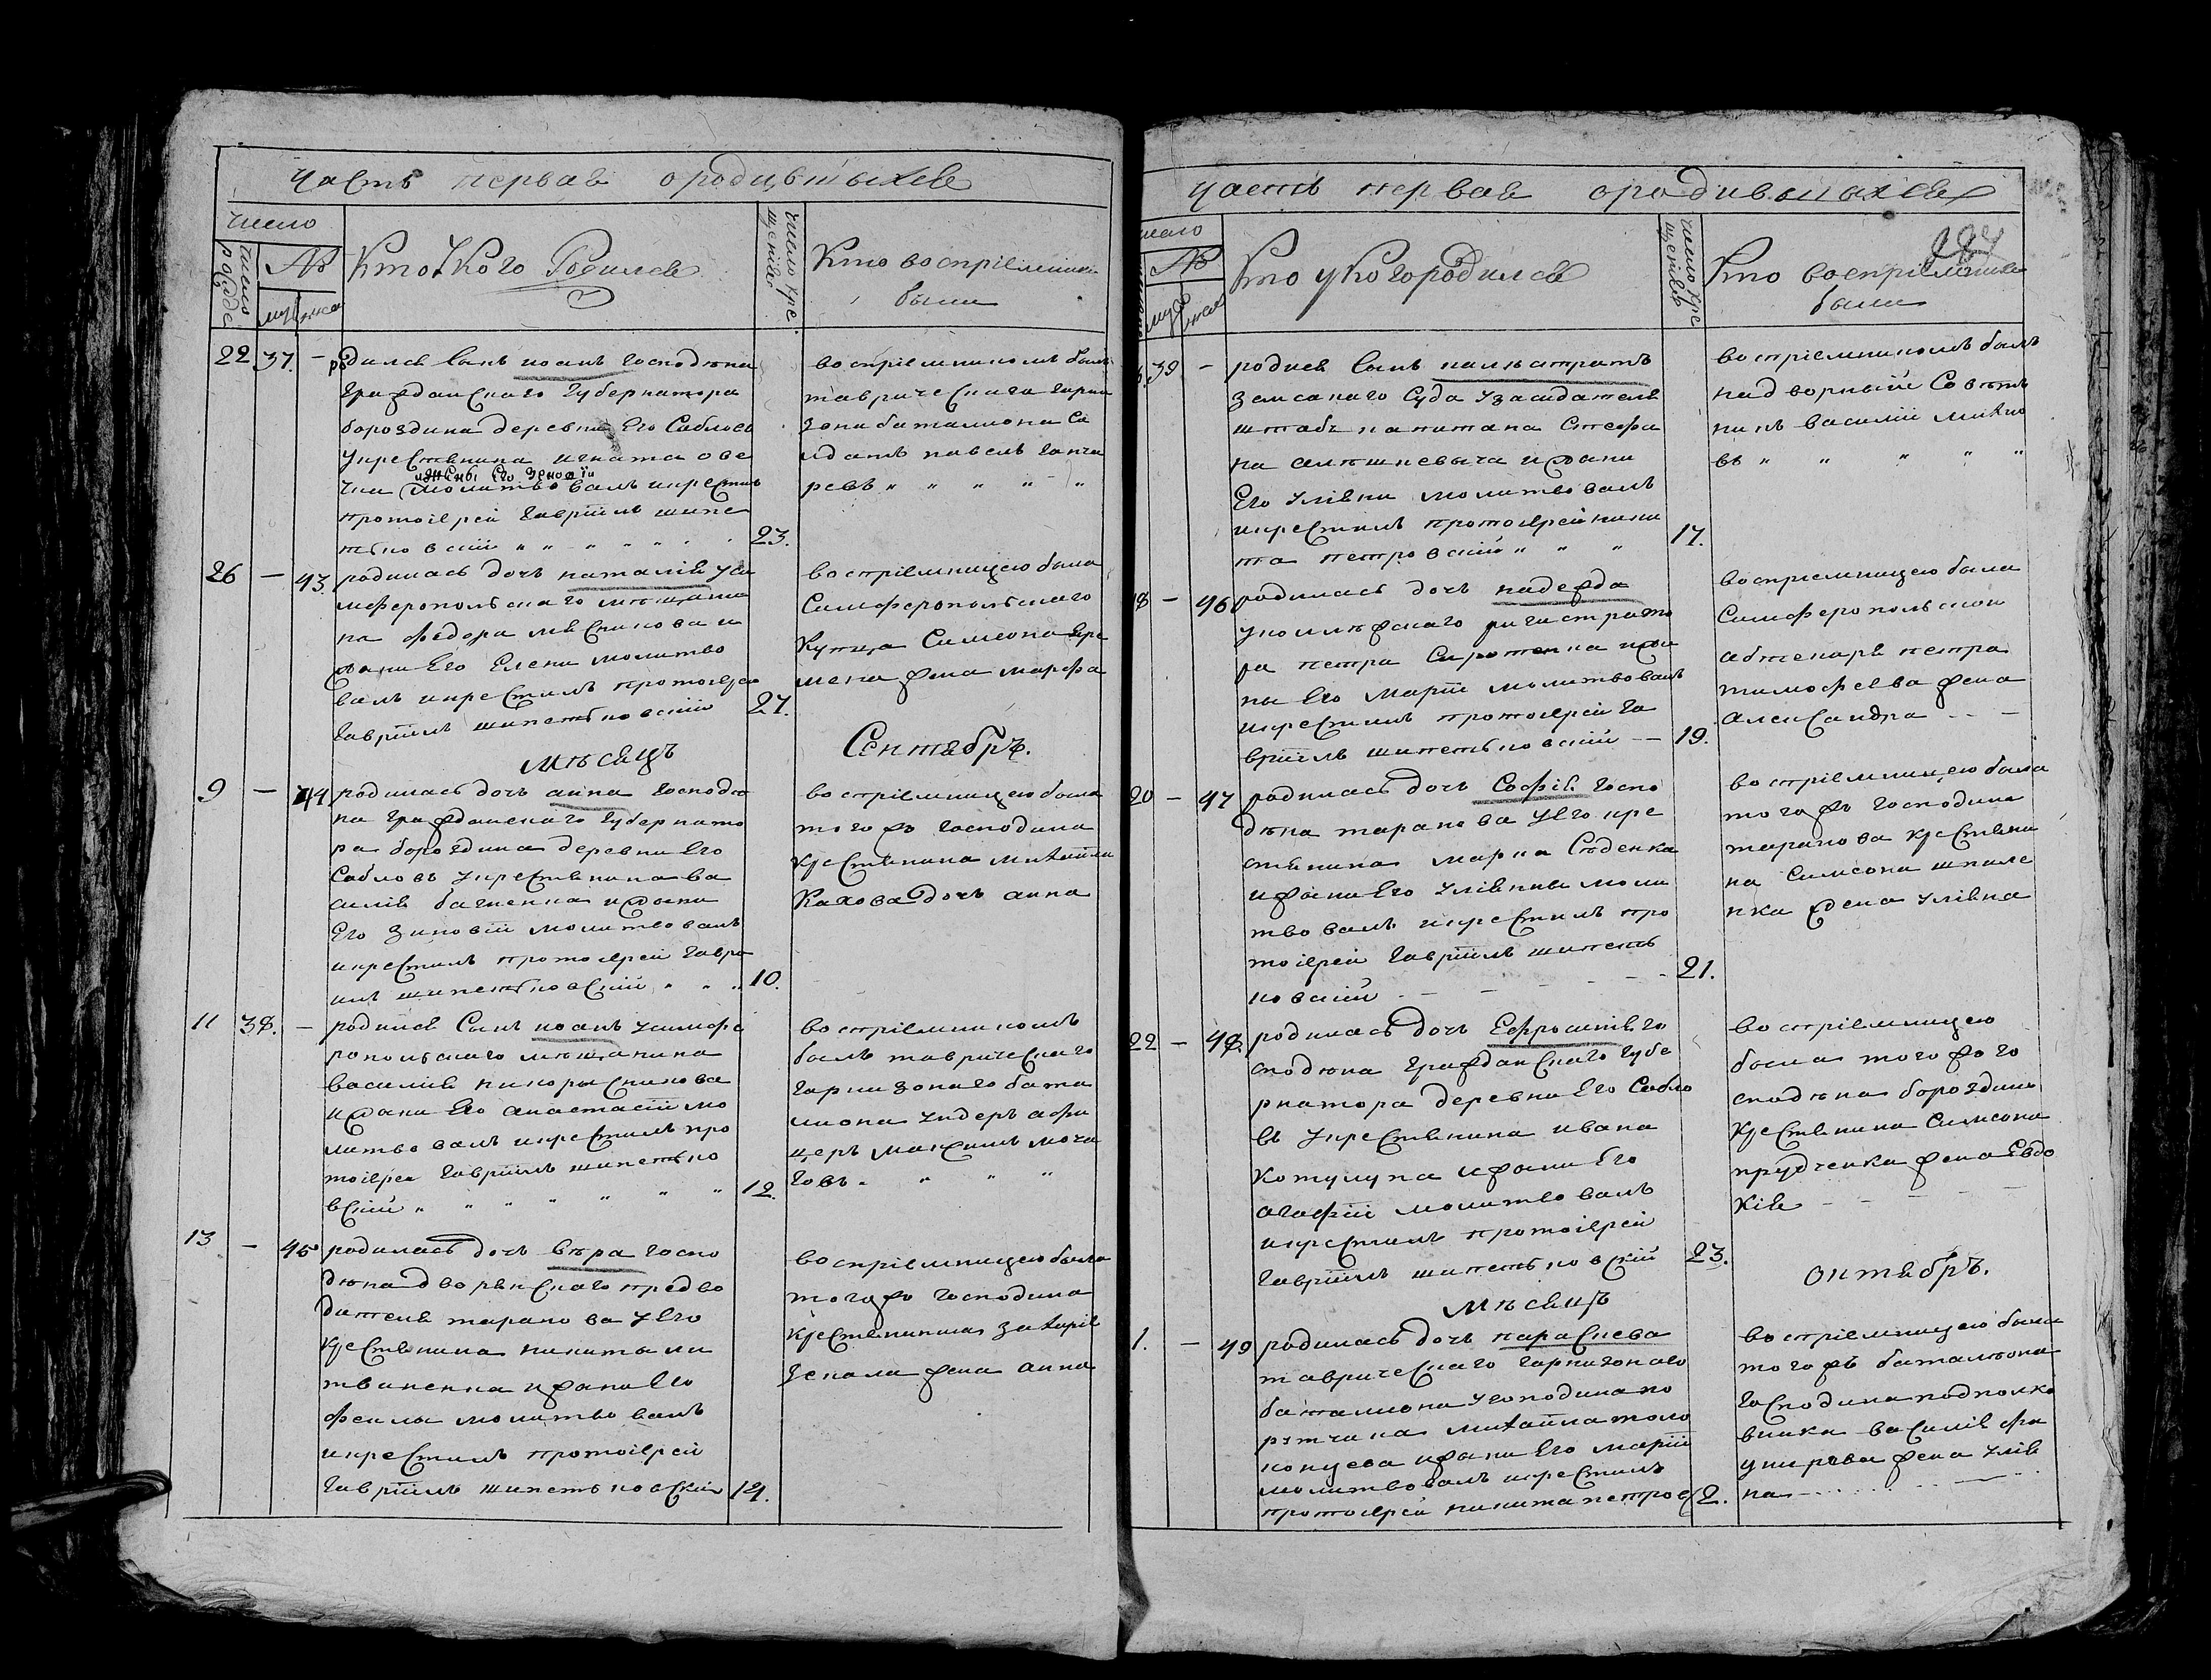 Часть первая о родившыхся
число
число рожде
№
муж
жен
Кто У Кого Родился
число крещенiя
Кто восприемники
были
22 37. – родился Сынъ иоанъ господина
Гражданскаго Губернатора
бороздина деревни Его Сабловъ
Укрестянина игната ове
и жены Его Зеновiи
чки молитвовалъ икрестилъ
протоiерей гаврiилъ шипе
тьковскiй " " " " " 23.
восприемникомъ былъ
таврическаго гарни
зона баталиона Са
лдатъ павелъ ганча
ревъ " " " " "
26 – 43. родилась дочь наталiя уси
мферопольскаго мѣщани
на федора мясникова и
жены Его Елени молитво
валъ икрестилъ протоiерей
гаврiилъ шипетьковскiй 27.
восприемницею была
Симферопольскаго
Купца Симеона Яре
мена жена марфа
мѣсяцъ Сентябръ.
9 – 44 родилась дочь анна господи
на гражданскаго губернато
ра бороздина деревни Его
Сабловъ Укрестянина ва
силiя багненка ижены
Его зиновiи молитвовалъ
икрестилъ протоиерей гаври
илъ шипетьковскiй " " " 10.
восприемницею была
тогожъ господина
крестянина михайла
Кахова дочь анна
11 38. – родился Сынъ иоанъ усимфе
ропольскаго мѣщанина
василiя никорысникова
ижены Его анастасiи мо
литвовалъ икрестилъ про
тоiерей гаврiилъ шипетько
вскiй " " " " " " 12.
восприемникомъ
былъ таврическаго
гарнизонаго бата
лиона ундеръ афи
церъ максимъ моча
говъ " " " "
13 – 45 родилась дочь вѣра госпо
дина дворянскаго предво
дителя таранова уЕго
крестянина никиты ли
твиненка ижены Его
феклы молитвовалъ
икрестилъ протоiерей
гаврiилъ шипетьковскiй 14.
восприемницею была
тогожъ господина
крестянина захарiя
гекала жена анна
Часть первая о родившыхся
число
№
муж
жен
Кто у Кого родился
число крещенiя
Кто восприемники
были
39 – родися Сынъ калистратъ
земскаго Суда узасидателя
штабъ капитана Стефа
на алѣшневыча ижены
Его Улiяни молитвовалъ
икрестилъ протоиерей ники
та петровскiй " " " 17.
восприемникомъ былъ
надворный Совѣт
никъ василiй михно
въ " " " " "
18 – 46 родилась дочь надежда
уколлѣжскаго регистрато
ра петра Сиротенка иже
ны Его марiи молитвовалъ
икрестилъ протоиерей га
врiилъ шипетьковскiй – 19.
восприемницею была
Симферопольскои
абтекаря петра
тимофеева жена
александра – –
20 – 47 родилась дочь Софiя госпо
дина таранова уЕго кре
стянина марка Сѣденка
ижены Его улiянии моли
твовалъ икрестилъ про
тоiерей гаврiилъ шипеть
ковскiй – – – – 21.
восприемницею была
тогожъ господина
таранова крестяни
на Симеона шпале
нка жена улiяна
22 – 48. родилась дочь Ефросинiя го
сподина гражданскаго губе
рнатора деревни Его Сабло
въ укрестянина ивана
Котулупа ижены Его
агафiи молитвовалъ
икрестилъ протоiерей
гаврiилъ шипетьковскiй 23.
восприемницею
была тогожъ го
сподина бороздина
крестянина Симеона
прудченка жена Евдо
кiя – – – –
мѣсяцъ октябръ.
1. – 49 родилась дочь параскева
таврическаго гарнизонаго
баталиона угосподина по
рутчика михайла толо
концева ижены Его марiи
молитвовалъ икрестилъ
протоиерей никита петровс 2.
восприемницею была
тогожъ баталиона
господина подполко
вника василiя фа
жена улiя
на – – – –